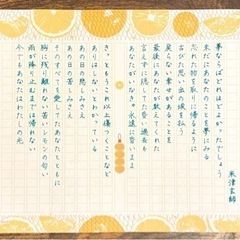 米津玄師
夢ならばどれほどよかったでしょう
未だにあなたのことを夢にみる
忘れた物を取りに帰るように
古びた思い出の埃を払う
戻らない幸せがあることを
最後にあなたが教えてくれた
言えずに隠してた昏い過去も
あなたがいなきゃ永遠に昏いまま
きっともうこれ以上傷つくことなど
ありはしないとわかっている
あの日の悲しみさえ
あの日の苦しみさえ
そのすべてを愛してたあなたとともに
胸に残り離れない苦いレモンの匂い
雨が降り止むまでは帰れない
今でもあなたはわたしの光